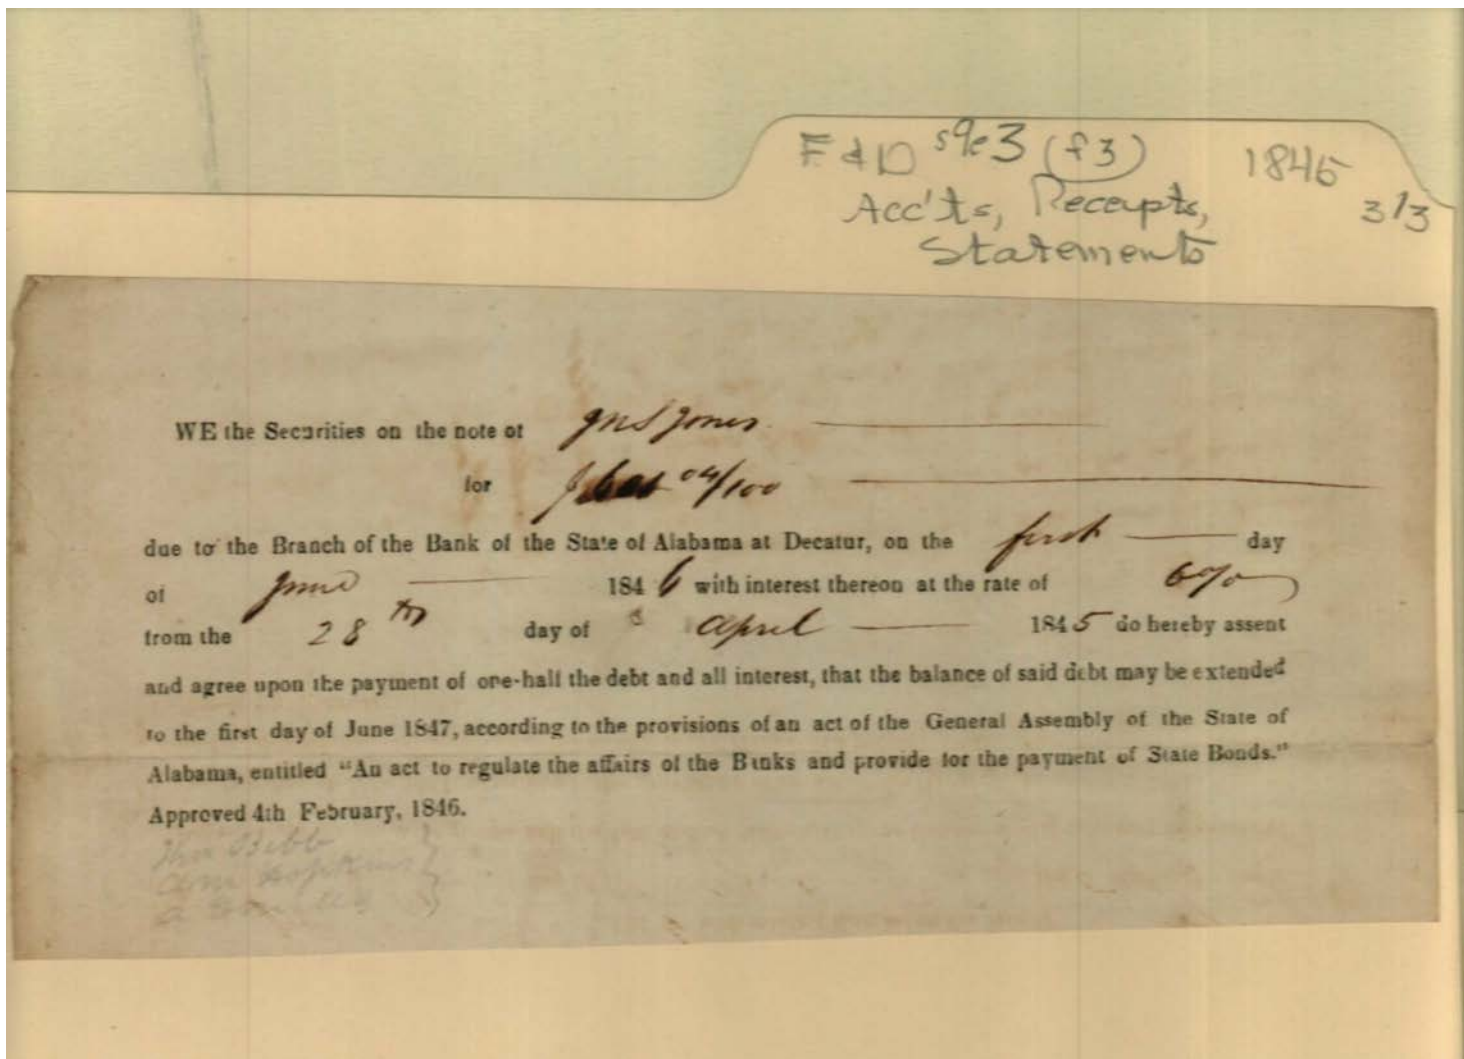 F & D s9e3 (f3) 1845
Acc'ts, Receipts, 3/3
Statements
WE the Securities on the note of Jno S Jones
for 04/100
due to the Branch of the Bank of the State of Alabama at Decatur, on the first day
of June 1846 with interest thereon at the rate of 6%
from the 28th day of April 1845 do hereby assent
and agree upon the payment of one-half the debt and all interest, that the balance of said debt may be extended
to the first day of June 1847, according to the provisions of an act of the General Assembly of the State of
Alabama, entitled "An act to regulate the affairs of the Banks and provide for the payment of State Bonds."
Approved 4th February, 1846.
Bibb
Hopkins